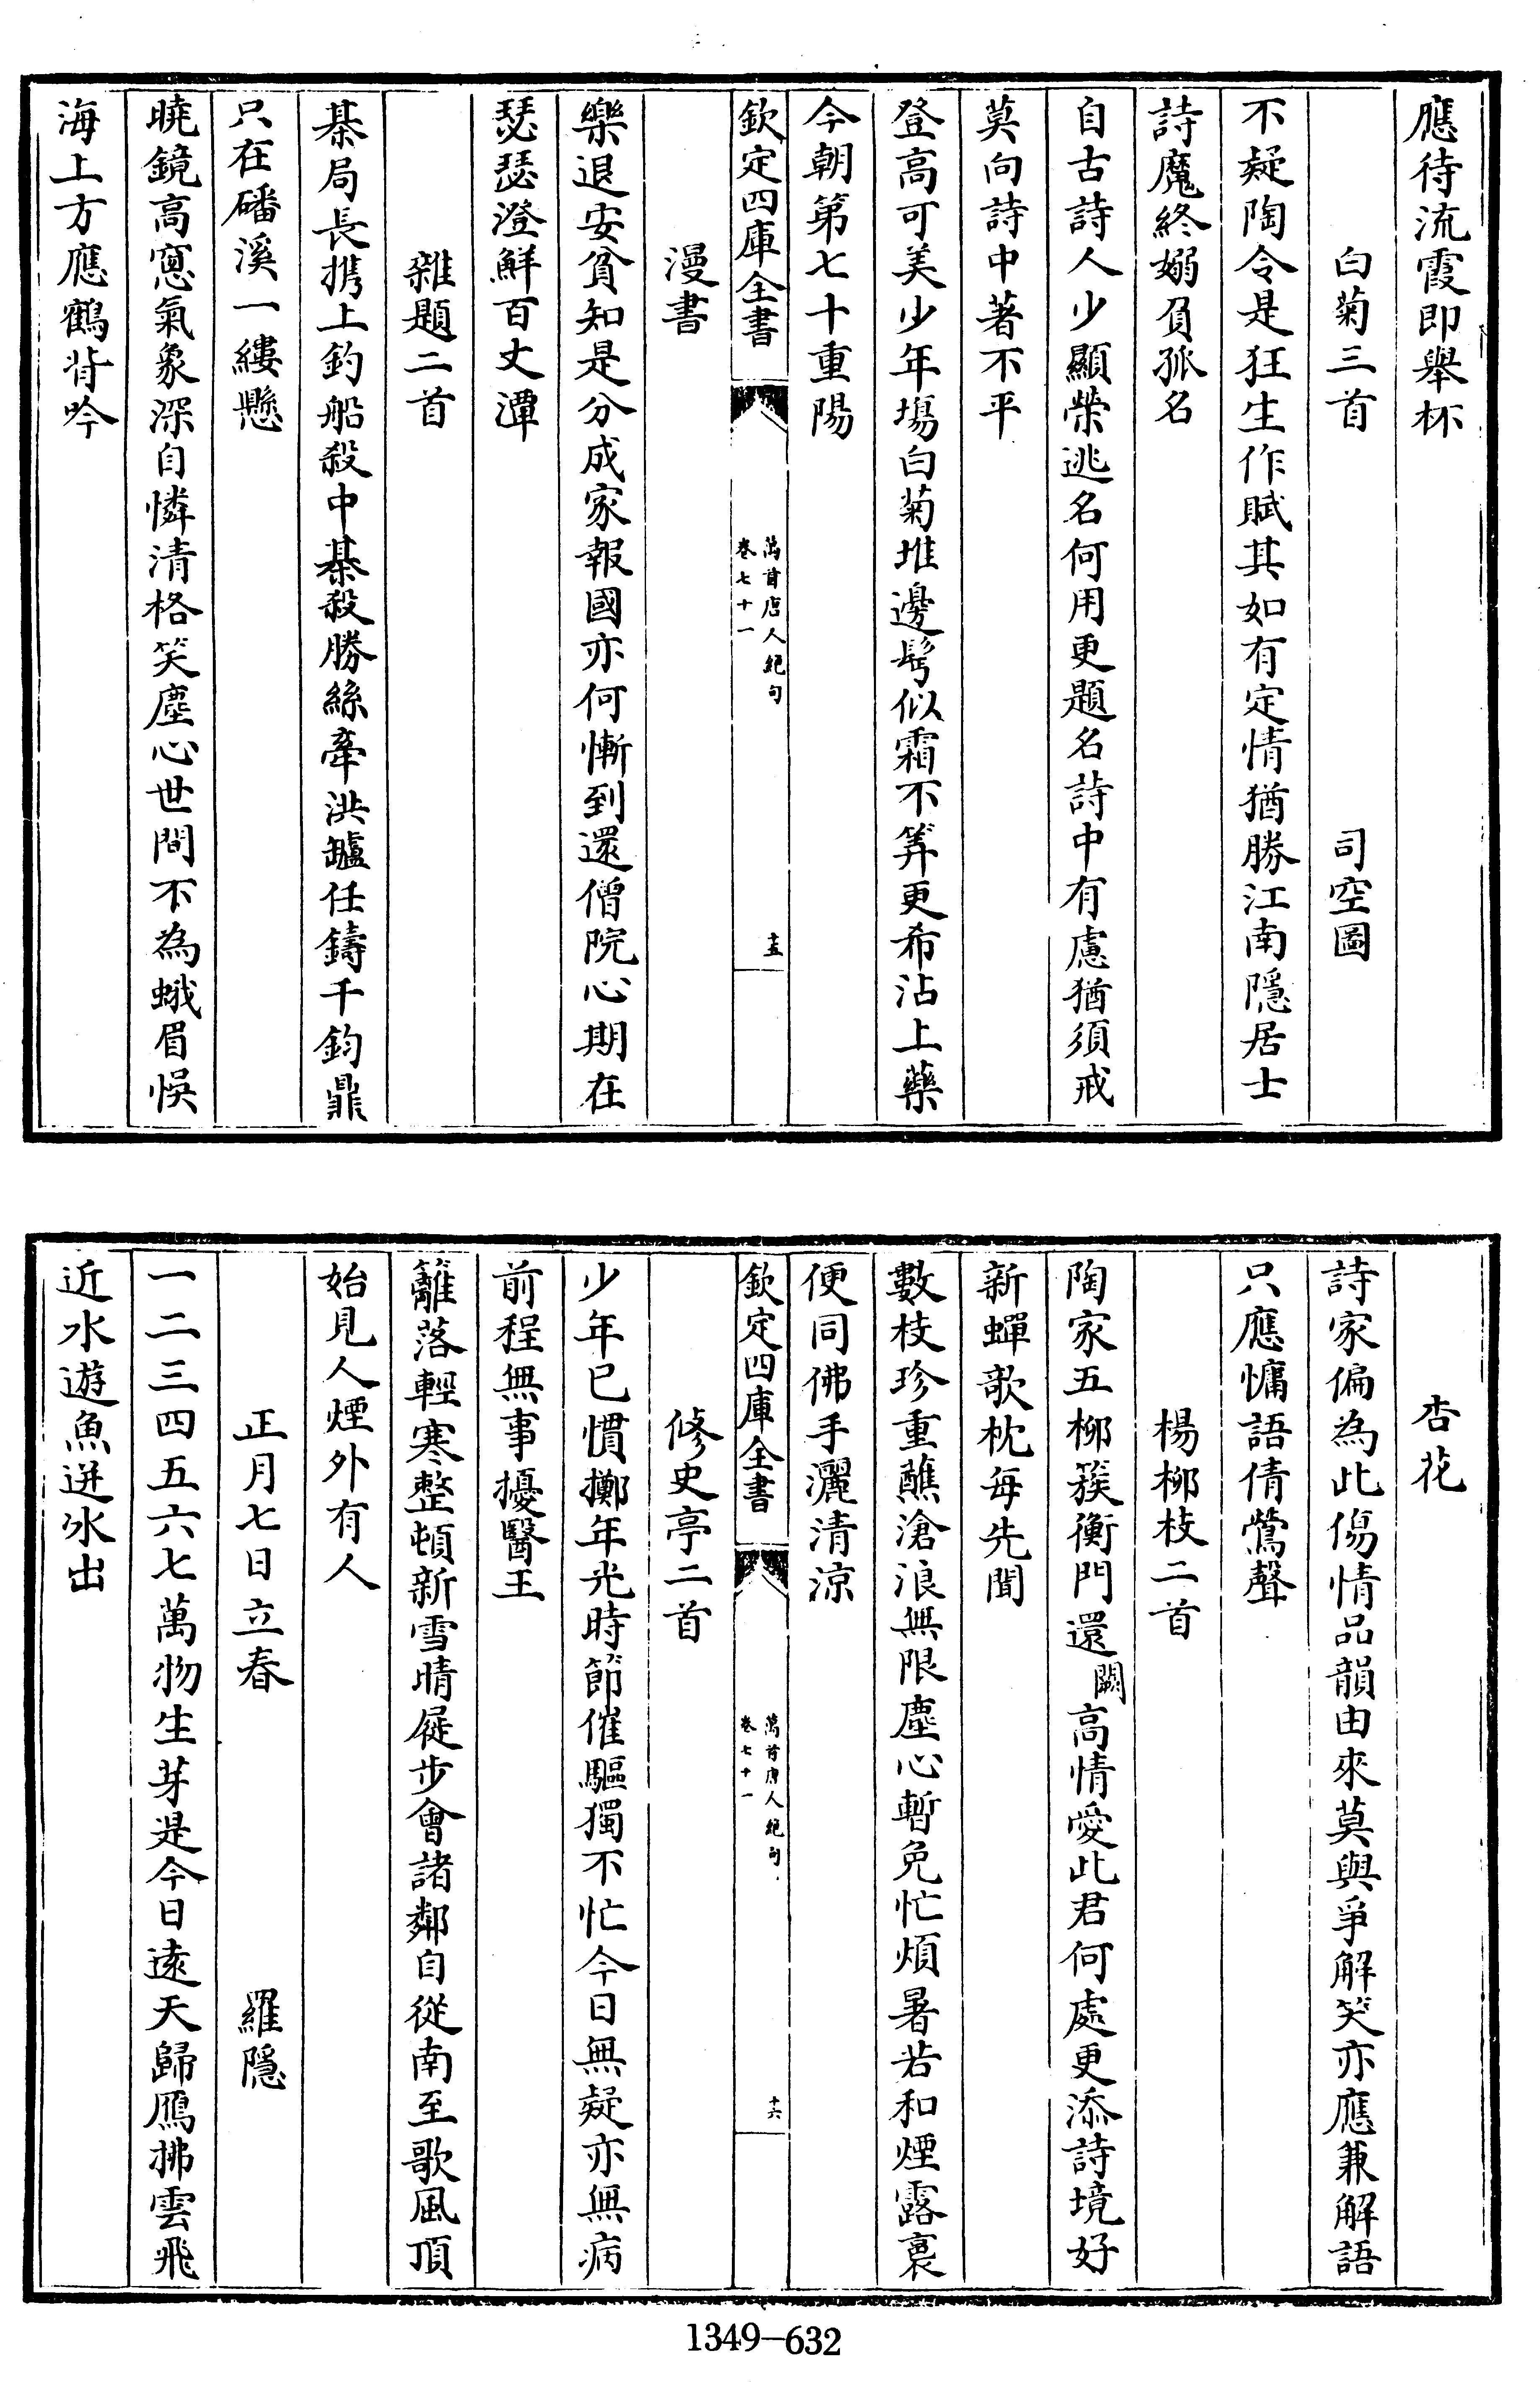 應待流霞即舉杯
白菊三首 司空圖
不疑陶令是狂生作賦其如有定情猶勝江南隱居士
詩魔終嫋負孤名
自古詩人少顯榮逃名何用更題名詩中有慮猶須戒
莫向詩中著不平
登高可羙少年塲白菊堆邊鬂似霜不筭更希沾上藥
今朝第七十重陽
欽定四庫全書
萬首唐人絕句
卷七十一
十五
漫書
樂退安貧知是分成家報國亦何慚到還僧院心期在
瑟瑟澄鮮百丈潭
雜題二首
棊局長携上釣船殺中棊殺勝絲牽洪鑪任鑄千鈞鼎
只在磻溪一縷懸
曉鏡高窻氣象深自憐清格笑塵心世間不為蛾眉悞
海上方應鶴背吟
杏花
詩家偏為此傷情品韻由來莫與爭解笑亦應兼解語
只應慵語倩鶯聲
楊柳枝二首
陶家五柳簇衡門還闕高情愛此君何處更添詩境好
新蟬歌枕每先聞
數枝珍重蘸滄浪無限塵心暫免忙煩暑若和煙露裛
便同佛手灑清涼
欽定四庫全書
萬首唐人絕句
卷七十一
十六
修史亭二首
少年已慣擲年光時節催驅獨不忙今日無疑亦無病
前程無事擾醫王
籬落輕寒整頓新雪晴屣步會諸鄰自從南至歌風頂
始見人煙外有人
正月七日立春 羅隱
一二三四五六七萬物生芽是今日逺天歸鴈拂雲飛
近水遊魚迸冰出
1349-632